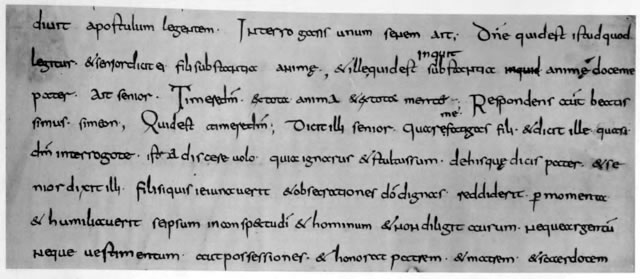 diuit apostulum legentem. Interrogans unum senem ait; Dñe quid est istud quod
legitur. & senior dicit ei fili substantia animę, & ille quid est inquit substantia animę doce me
pater. Ait senior. Timere dm̄. & tota anima & ex tota mente; Respondens aut beatis
simus simeon; Quid est timere dm̄; Dicit illi senior. quare me fatigas fili. & dicit ille quasi
dm̄ interrogo te. ista discere uolo. quia ignarus & stultus sum. de hisque dicis pater. & se
nior dixit illi. fili si quis ieiunauerit & obsecrationes dō dignas reddiderit. p momenta
& humiliauerit se ipsum in conspectu dī & hominum & non diligit aurum. neque argentū
neque uestimentum. aut possessiones. & honorat patrem. & matrem. & sacerdotem